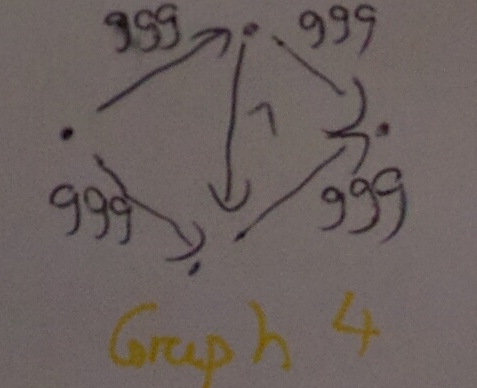 999 999
1
999 999
Graph 4